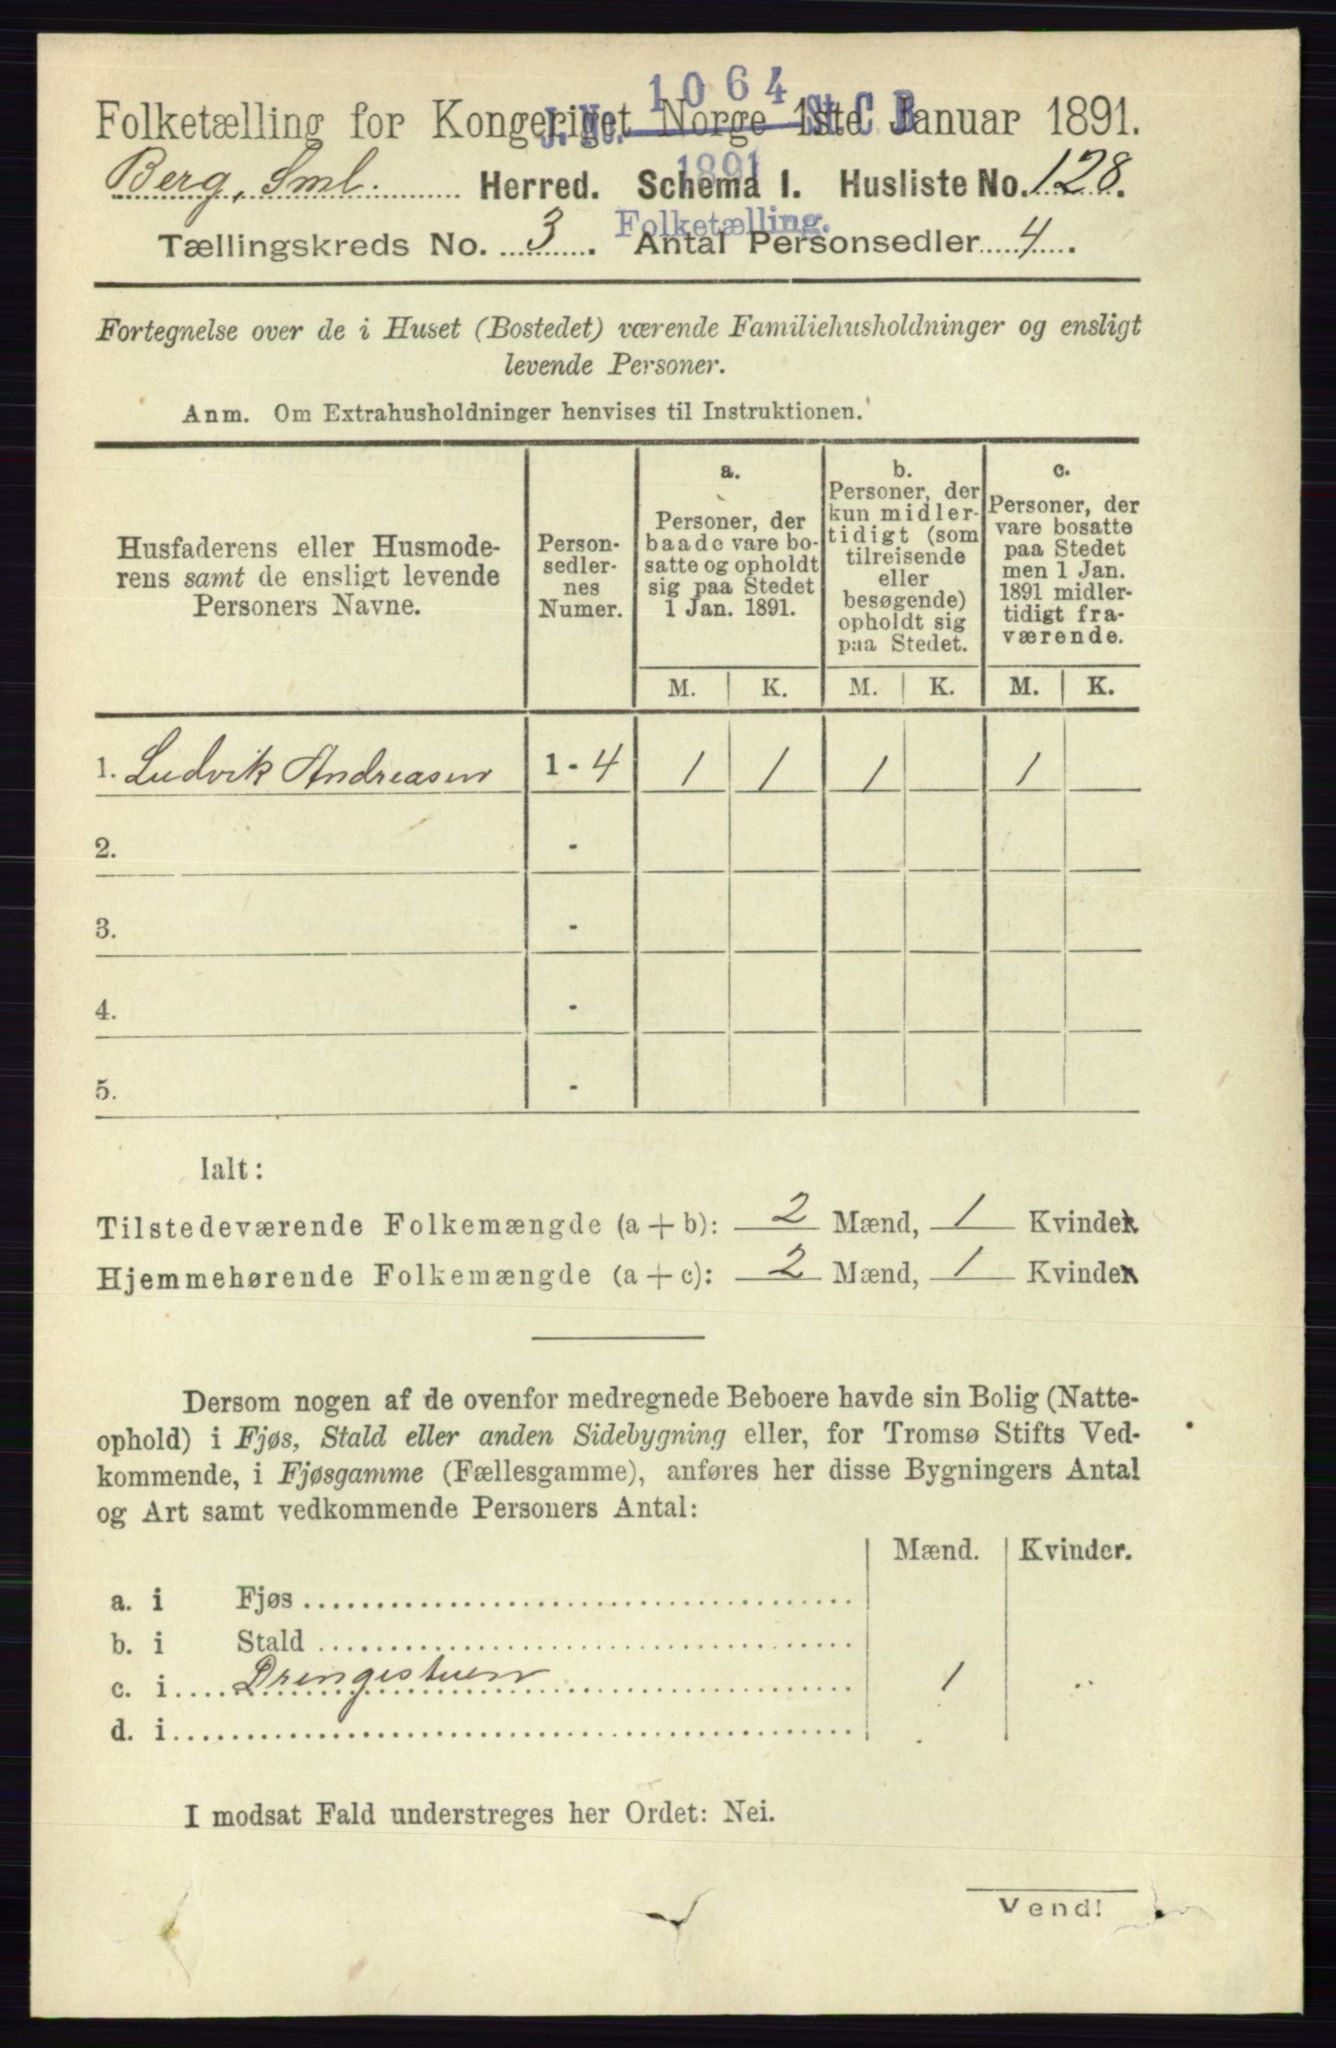 1064
J. No. St. C B
1891
Folketælling.
Folketælling for Kongeriget Norge 1ste Januar 1891.
Berg, Sml. Herred. Schema I. Husliste No. 128.
Tællingskreds No. 3. Antal Personsedler 4.
Fortegnelse over de i Huset (Bostedet) værende Familiehusholdninger og ensligt
levende Personer.
Anm. Om Extrahusholdninger henvises til Instruktionen.
Husfaderens eller Husmode-
rens samt de ensligt levende
Personers Navne.
Person-
sedler-
nes
Numer.
a.
Personer, der
baade vare bo-
satte og opholdt
sig paa Stedet
1 Jan. 1891.
b.
Personer, der
kun midler-
tidigt (som
tilreisende
eller
besøgende)
opholdt sig
paa Stedet.
c.
Personer, der
vare bosatte
paa Stedet
men 1 Jan.
1891 midler-
tidigt fra-
værende.
M. K. M. K. M. K.
1. Ludvik Andreasen 1 - 4 1 1 1 1
2. -
3. -
4. -
5. -
Ialt:
Tilstedeværende Folkemængde (a + b): 2 Mænd, 1 Kvinder
Hjemmehørende Folkemængde (a + c): 2 Mænd, 1 Kvinder
Dersom nogen af de ovenfor medregnede Beboere havde sin Bolig (Natte-
ophold) i Fjøs, Stald eller anden Sidebygning eller, for Tromsø Stifts Ved-
kommende, i Fjøsgamme (Fællesgamme), anføres her disse Bygningers Antal
og Art samt vedkommende Personers Antal:
Mænd. Kvinder.
a. i Fjøs
b. i Stald
c. i Drengestuen 1 "
d. i
I modsat Fald understreges her Ordet: Nei.
Vend!